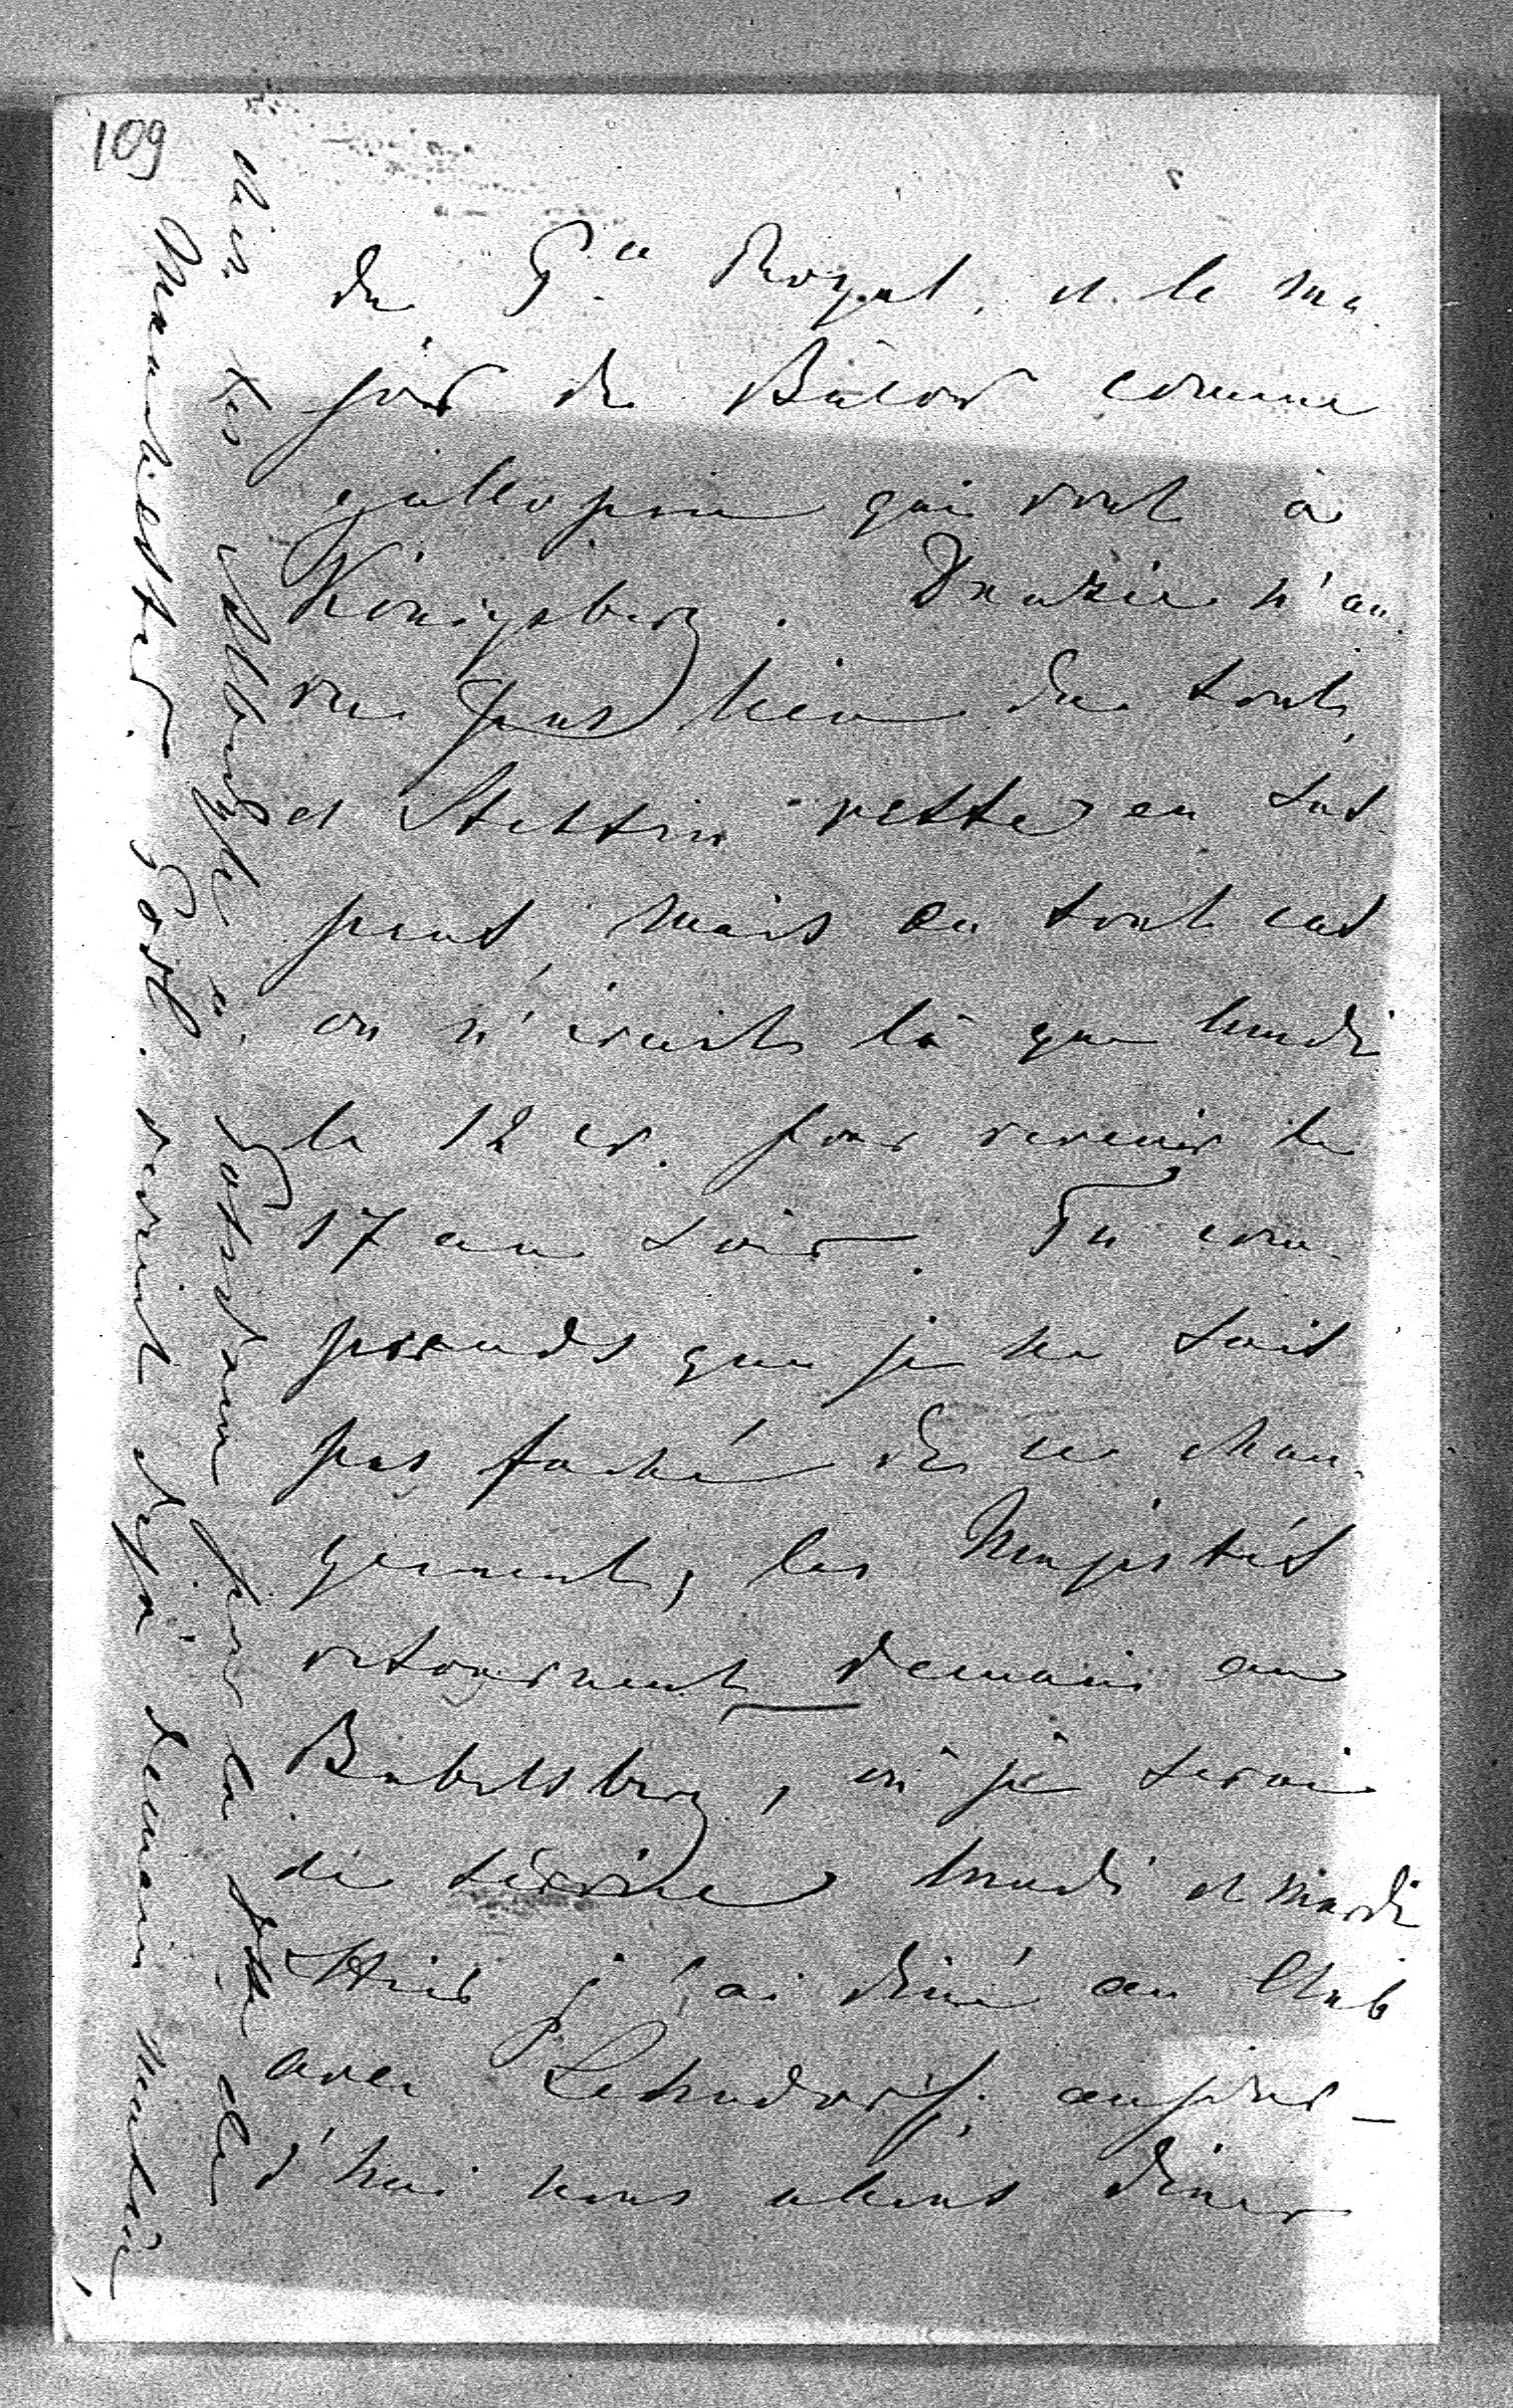 109
du P.ce Royal, et le ma-
jor de Bülow comme
gallopin qui vont à
Königsberg. Danzic n'au-
ra pas lieu du tout,
et Stettin reste en sus-
pens, mais en tout cas
on n'irait là que lundi
le 12 cr. pour revenir le
17 au soir. Tu com-
prends que je ne sois
pas faché de ce chan-
gement, les Majestés
retournent demain au
Babelsberg, où je serai
de service lundi et mardi
Hier j'ai diné au Club
avec Lehndorff, aujour-
d'hui nous allons diner
à Potsdam pour la
revient déjà demain matin,